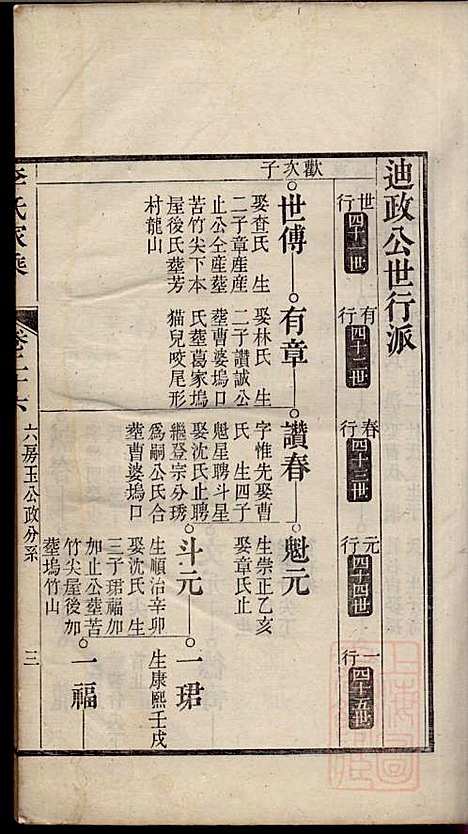 迪政公世行派
世行
四十一世
有行
四十二世
春行
四十三世
元行
四十四世
一行
四十五世
歡次子
世傅
娶查氏 生
二子章產產
止公仝產塟
苦竹尖下本
屋後氏塟芳
村龍山
有章
娶林氏 生
二子讚誠公
塟曹婆塢口
氏塟葛家塢
猫兒咬尾形
讚春
字惟先娶曹
氏 生四子
魁星聘斗星
娶沈氏止聘
繼登宗分琇
為嗣公氏合
塟曹婆塢口
魁元
生崇正乙亥
娶章氏止
斗元
生順治辛卯
娶沈氏 生
三子珺福加
加止公塟苦
竹尖屋後加
塟塢竹山
一珺
生康熙壬戌
一福
李氏家乘
卷之十六
六房玉公政分系
三